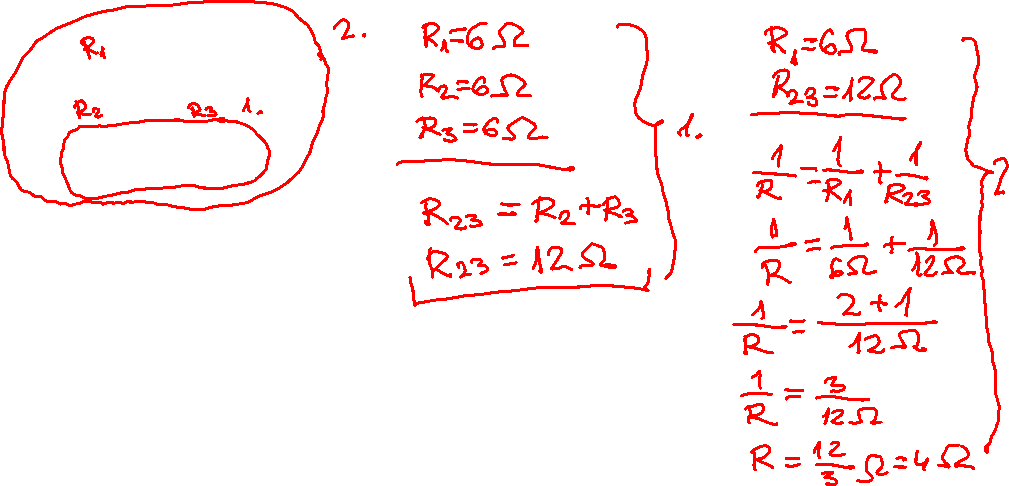 R₁
R₂ R₃ 1.
2.
R₁=6Ω
R₂=6Ω
R₃=6Ω
R₂₃ = R₂+R₃
R₂₃ = 12Ω
1.
R₁=6Ω
R₂₃=12Ω
1/R = 1/R₁ + 1/R₂₃
1/R = 1/6Ω + 1/12Ω
1/R = 2+1/12Ω
1/R = 3/12Ω
R = 12/3 Ω = 4Ω
2